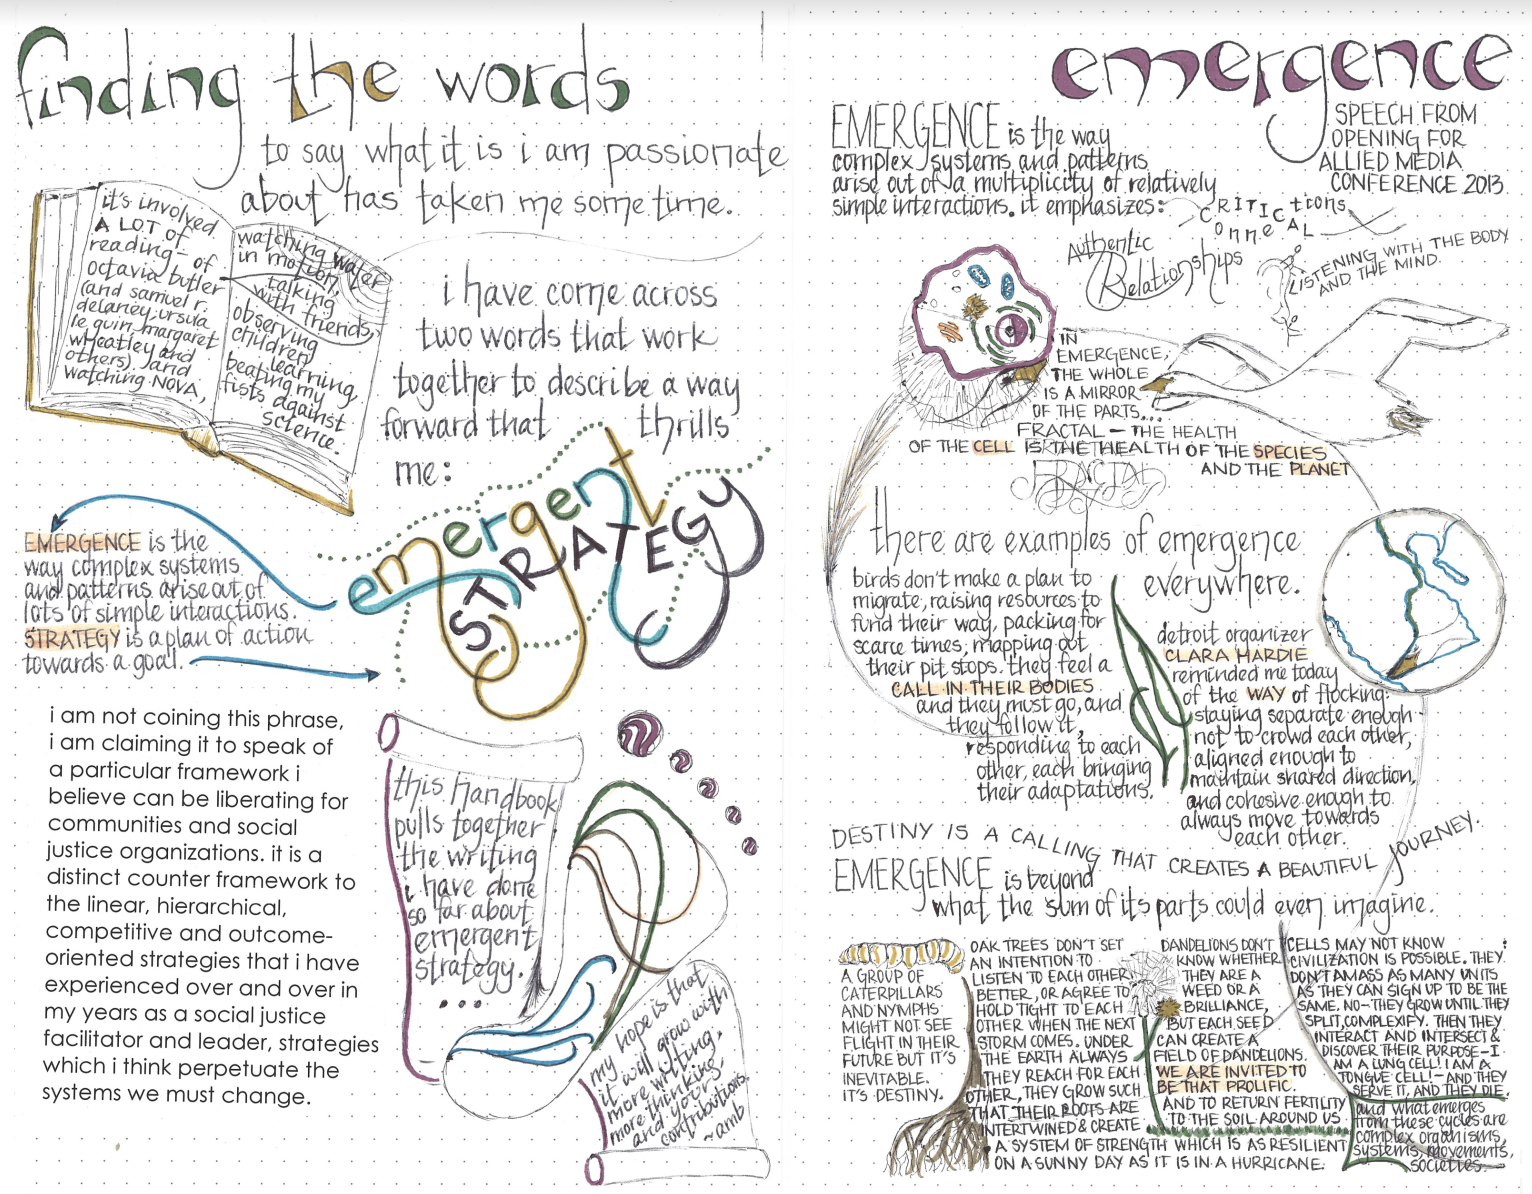 finding the words
to say what it is i am passionate
about has taken me some time.
it's involved
A LOT OF
reading - of
octavia butler
(and samuel r.
delaney, ursula
le guin, margaret
wheatley and
others), and
watching NOVA,
watching water
in motion,
talking
with friends,
observing
children
learning,
beating my
fists against
science.
i have come across
two words that work
together to describe a way
forward that thrills
me:
emergent
STRATEGY
EMERGENCE is the
way complex systems
and patterns arise out of
lots of simple interactions.
STRATEGY is a plan of action
towards a goal.
i am not coining this phrase,
i am claiming it to speak of
a particular framework i
believe can be liberating for
communities and social
justice organizations. it is a
distinct counter framework to
the linear, hierarchical,
competitive and outcome-
oriented strategies that i have
experienced over and over in
my years as a social justice
facilitator and leader, strategies
which i think perpetuate the
systems we must change.
this handbook
pulls together
the writing
i have done
so far about
emergent
strategy.
...
my hope is that
it will grow with
more writing,
more thinking,
and your
contributions.
~amb
emergence
SPEECH FROM
OPENING FOR
ALLIED MEDIA
CONFERENCE 2013
EMERGENCE is the way
complex systems and patterns
arise out of a multiplicity of relatively
simple interactions. it emphasizes:
CRITICAL
connections
Authentic
Relationships
LISTENING WITH THE BODY
AND THE MIND.
IN
EMERGENCE,
THE WHOLE
IS A MIRROR
OF THE PARTS...
FRACTAL — THE HEALTH
OF THE CELL IS THE HEALTH OF THE SPECIES
AND THE PLANET
FRACTAL
there are examples of emergence
everywhere.
birds don't make a plan to
migrate, raising resources to
fund their way, packing for
scarce times, mapping out
their pit stops. they feel a
CALL IN THEIR BODIES
and they must go, and
they follow it,
responding to each
other, each bringing
their adaptations.
detroit organizer
CLARA HARDIE
reminded me today
of the WAY of flocking:
staying separate enough
not to crowd each other,
aligned enough to
maintain shared direction,
and cohesive enough to
always move towards
each other.
DESTINY IS A CALLING THAT CREATES A BEAUTIFUL JOURNEY.
EMERGENCE is beyond
what the sum of its parts could even imagine.
A GROUP OF
CATERPILLARS
AND NYMPHS
MIGHT NOT SEE
FLIGHT IN THEIR
FUTURE BUT IT'S
INEVITABLE.
IT'S DESTINY.
OAK TREES DON'T SET
AN INTENTION TO
LISTEN TO EACH OTHER
BETTER, OR AGREE TO
HOLD TIGHT TO EACH
OTHER WHEN THE NEXT
STORM COMES. UNDER
THE EARTH ALWAYS
THEY REACH FOR EACH
OTHER, THEY GROW SUCH
THAT THEIR ROOTS ARE
INTERTWINED & CREATE
A SYSTEM OF STRENGTH WHICH IS AS RESILIENT
ON A SUNNY DAY AS IT IS IN A HURRICANE.
DANDELIONS DON'T
KNOW WHETHER
THEY ARE A
WEED OR A
BRILLIANCE,
BUT EACH SEED
CAN CREATE A
FIELD OF DANDELIONS.
WE ARE INVITED TO
BE THAT PROLIFIC.
AND TO RETURN FERTILITY
TO THE SOIL AROUND US
CELLS MAY NOT KNOW
CIVILIZATION IS POSSIBLE. THEY
DON'T AMASS AS MANY UNITS
AS THEY CAN SIGN UP TO BE THE
SAME. NO—THEY GROW UNTIL THEY
SPLIT, COMPLEXIFY. THEN THEY
INTERACT AND INTERSECT &
DISCOVER THEIR PURPOSE—I
AM A LUNG CELL! I AM A
TONGUE CELL!—AND THEY
SERVE IT, AND THEY DIE.
and what emerges
from these cycles are
complex organisms,
systems, movements,
societies.